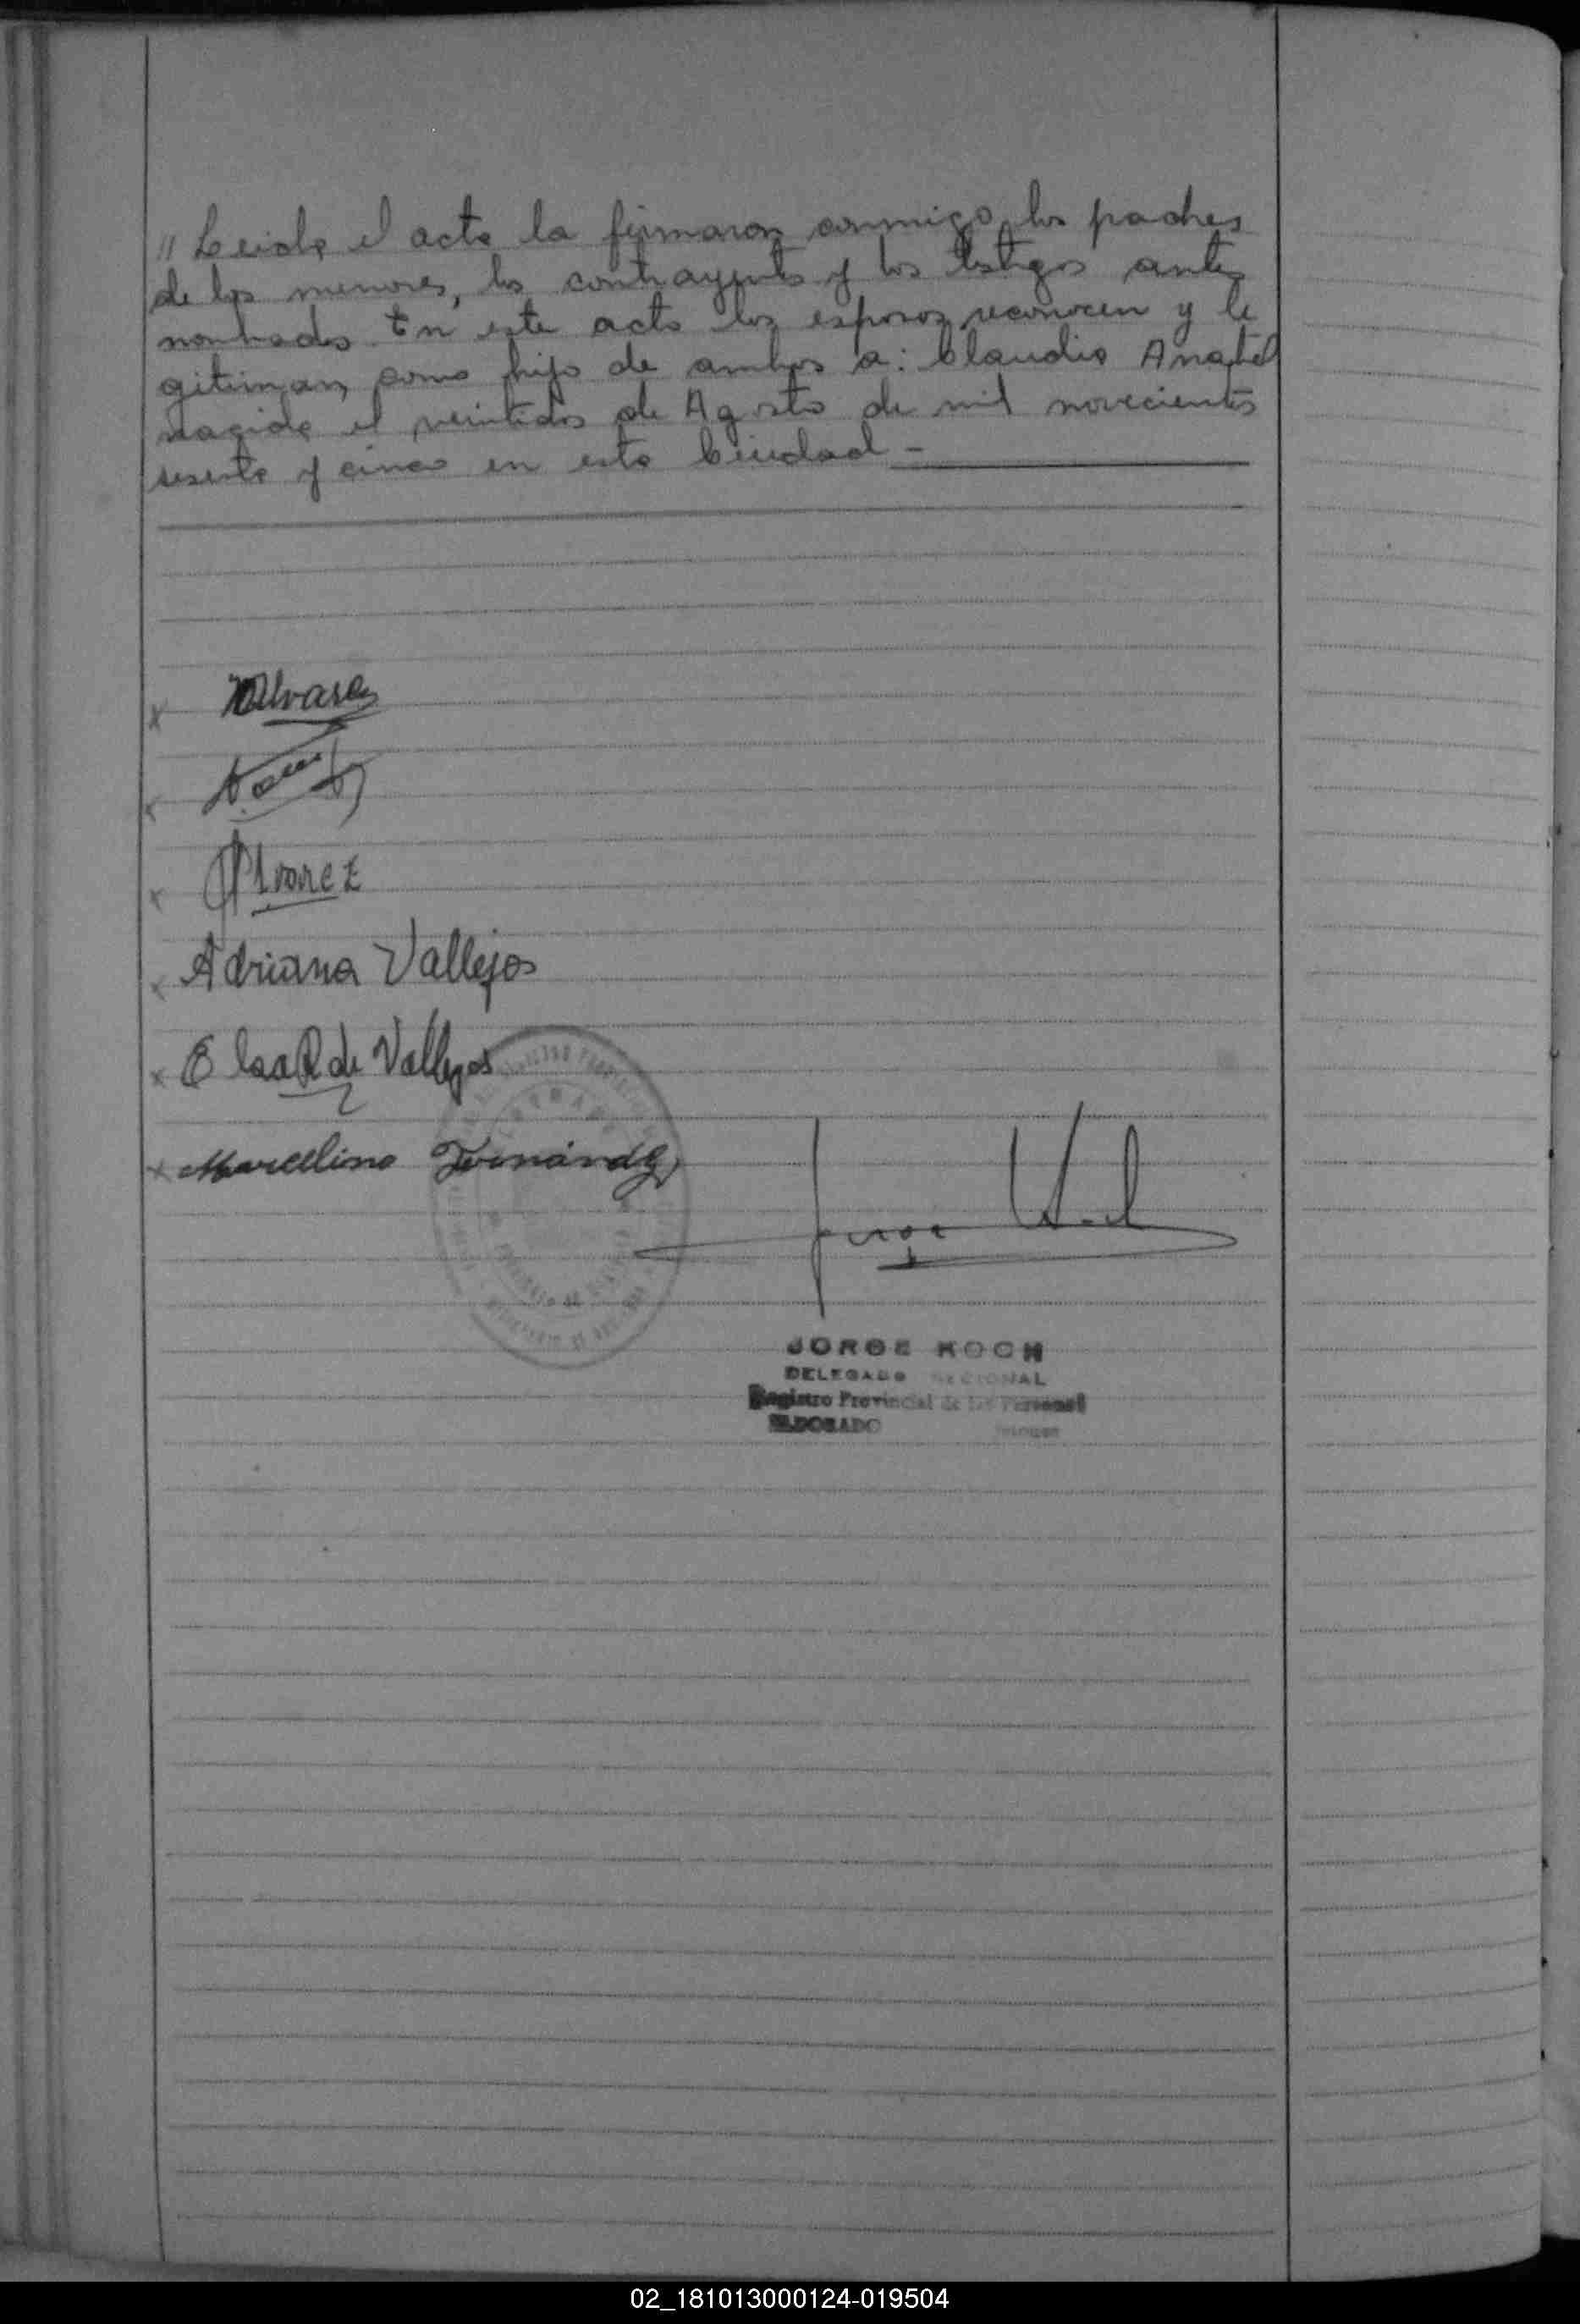 // Leida el acta la firmaron conmigo los padres
de los menores, los contrayentes y los testigos antes
nombrados. En este acto los esposos reconocen y le
gitiman como hijo de ambos a: Claudio Anatol
nacido el veintidos de Agosto de mil novecientos
sesenta y cinco en esta Ciudad -
x Alvarez
x
x Alvarez
x Adriana Vallejos
x Elsa R de Vallejos
x Marcelino Fernández
Jorge Koch
JORGE KOCH
DELEGADO REGIONAL
Registro Provincial de las Personas
ELDORADO Misiones
02_181013000124-019504